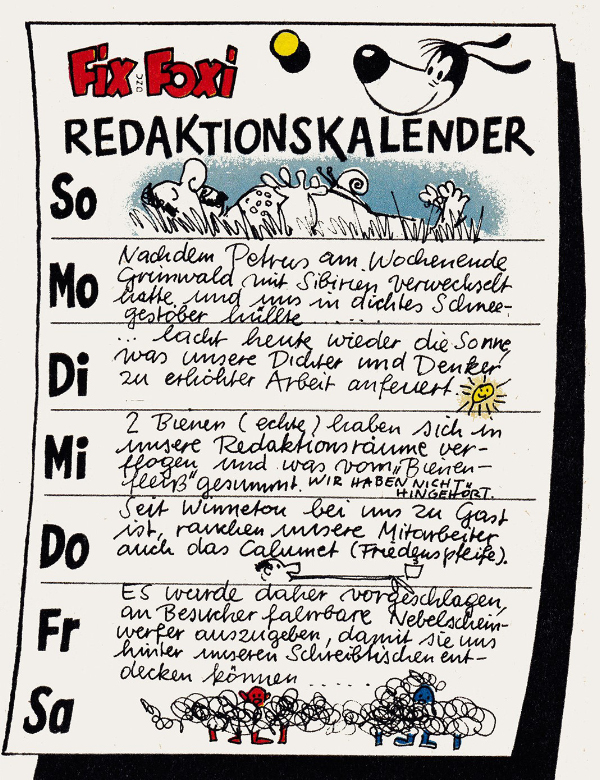 Fix und Foxi
REDAKTIONSKALENDER
So
Mo
Nachdem Petrus am Wochenende
Grünwald mit Sibirien verwechselt
hatte und uns in dichtes Schnee-
gestöber hüllte .....
Di
... lacht heute wieder die Sonne,
was unsere Dichter und Denker
zu erhöhter Arbeit anfeuert.
Mi
2 Bienen (echte) haben sich in
unsere Redaktionsräume ver-
flogen und was vom „Bienen-
fleiß" gesummt. WIR HABEN NICHT
HINGEHÖRT.
Do
Seit Winnetou bei uns zu Gast
ist, rauchen unsere Mitarbeiter
auch das Calumet (Friedenspfeife).
Fr
Es wurde daher vorgeschlagen,
an Besucher fahrbare Nebelschein-
werfer auszugeben, damit sie uns
hinter unseren Schreibtischen ent-
decken können ......
Sa